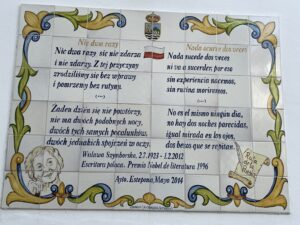 Nic dwa razy
Nic dwa razy się nie zdarza
i nie zdarzy. Z tej przyczyny
zrodziliśmy się bez wprawy
i pomrzemy bez rutyny.
(...)
Żaden dzień się nie powtórzy,
nie ma dwóch podobnych nocy,
dwóch tych samych pocałunków,
dwóch jednakich spojrzeń w oczy.
Nada ocurre dos veces
Nada sucede dos veces
ni va a suceder, por eso
sin experiencia nacemos,
sin rutina moriremos.
(...)
No es el mismo ningún día,
no hay dos noches parecidas,
igual mirada en los ojos,
dos besos que se repitan.
Wislawa Szymborska, 2.7.1923 - 1.2.2012
Escritora polaca. Premio Nobel de literatura 1996
Ayto. Estepona, Mayo 2014
Ruta
de la
Poesía